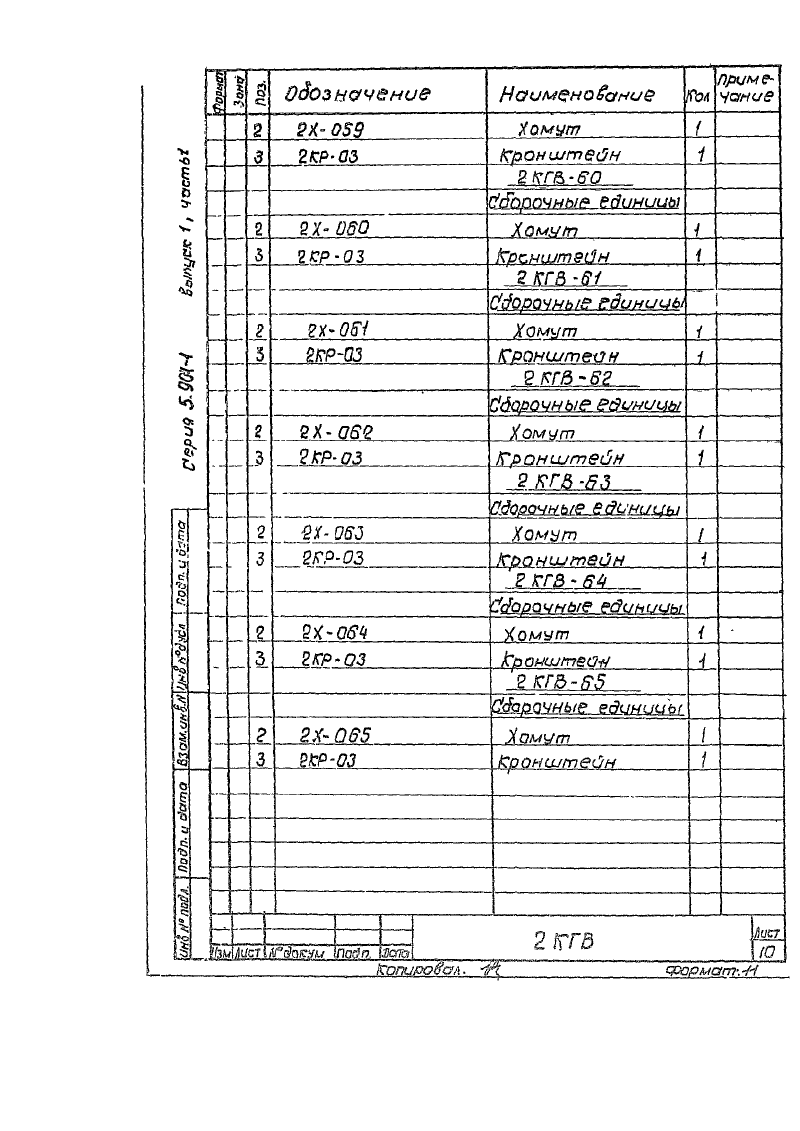 Формат Зона Поз. Обозначение Наименование Кол Приме-
чание
2 2Х-059 Хомут 1
3 2КР-03 Кронштейн 1
2 КГВ-60
Сборочные единицы
2 2Х-060 Хомут 1
3 2КР-03 Кронштейн 1
2 КГВ-61
Сборочные единицы
2 2Х-061 Хомут 1
3 2КР-03 Кронштейн 1
2 КГВ-62
Сборочные единицы
2 2Х-062 Хомут 1
3 2КР-03 Кронштейн 1
2 КГВ-63
Сборочные единицы
2 2Х-063 Хомут 1
3 2КР-03 Кронштейн 1
2 КГВ-64
Сборочные единицы
2 2Х-064 Хомут 1
3 2КР-03 Кронштейн 1
2 КГВ-65
Сборочные единицы
2 2Х-065 Хомут 1
3 2КР-03 Кронштейн 1
Серия 5.904-1 Выпуск 1, часть 1
Инв.№ подл. Подп. и дата Взам.инв.№ Инв.№ дубл Подп. и дата
Изм Лист № докум Подп. Дата
2 КГВ
Лист
10
Копировал.
Формат.11